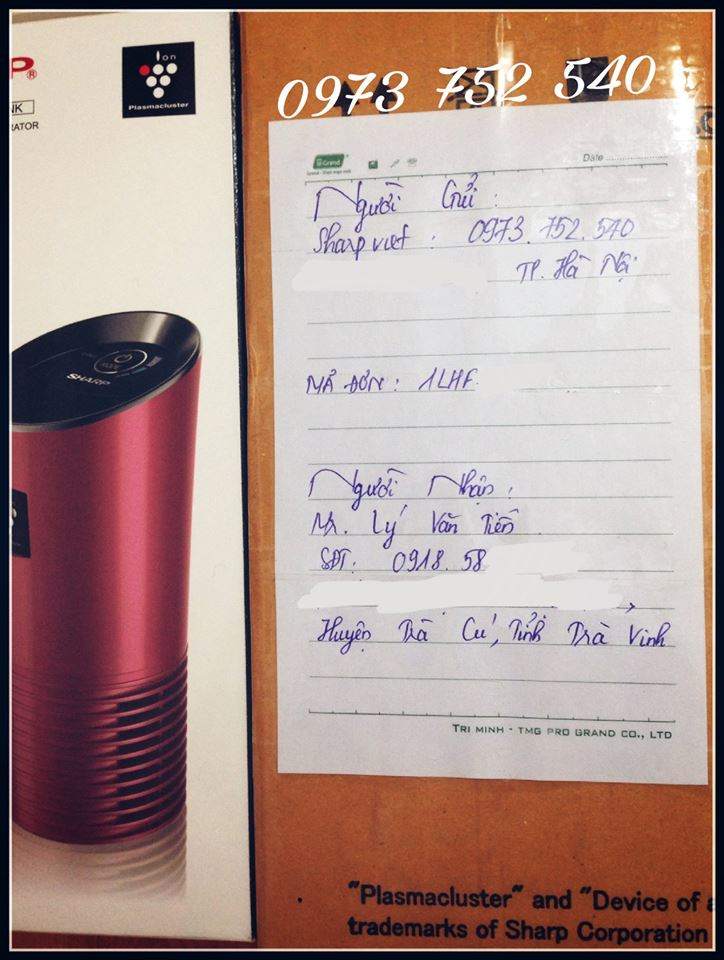 0973 752 540
P®
Ion
Plasmacluster
NK
RATOR
SHARP
Grand
Date
Người Gửi :
Sharp việt : 0973.752.540
TP. Hà Nội
MÃ ĐƠN : 1LHF
Người Nhận :
Mr. Lý Văn Tiến
SĐT: 0918.58
Huyện Trà Cú, Tỉnh Trà Vinh
TRI MINH - TMG PRO GRAND CO., LTD
"Plasmacluster" and "Device of a
trademarks of Sharp Corporation